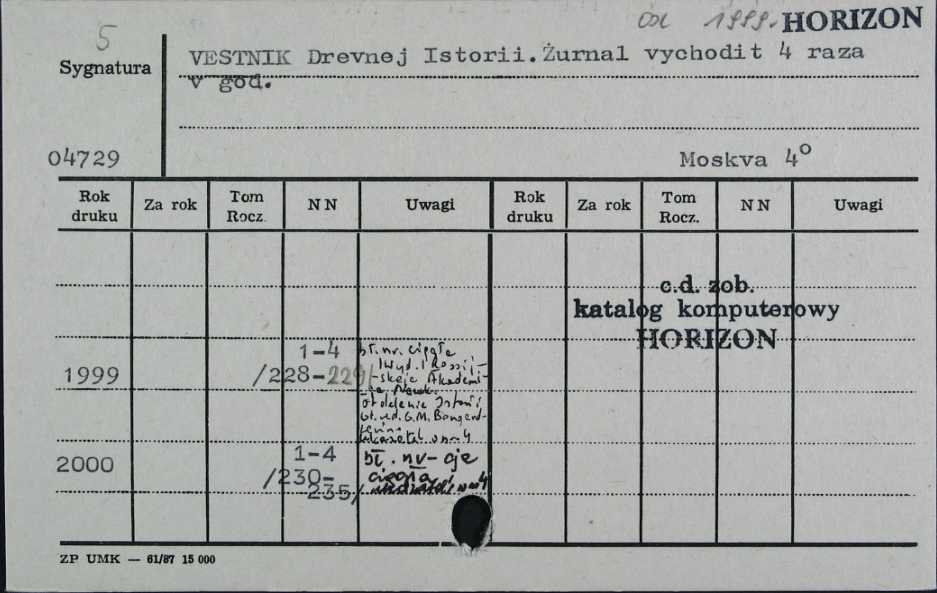 od 1999. HORIZON
5
Sygnatura
VESTNIK Drevnej Istorii. Żurnal vychodit 4 raza
v god.
04729
Moskva 4°
Rok druku Za rok Tom Rocz. NN Uwagi Rok druku Za rok Tom Rocz. NN Uwagi
c.d. zob.
katalog komputerowy
HORIZON
1999 1-4
/228-229/
bł. nr. ciągła
Wyd. Rossij-
skaja Akademi-
ja Nauk.
otdelenie Istorii
gł. red. G.M. Bongard-
Levin.
ukazatel v nr 4
2000 1-4
/230-
235/
bł. nu-cje
ciągła
v nr 4
ZP UMK — 61/87 15 000